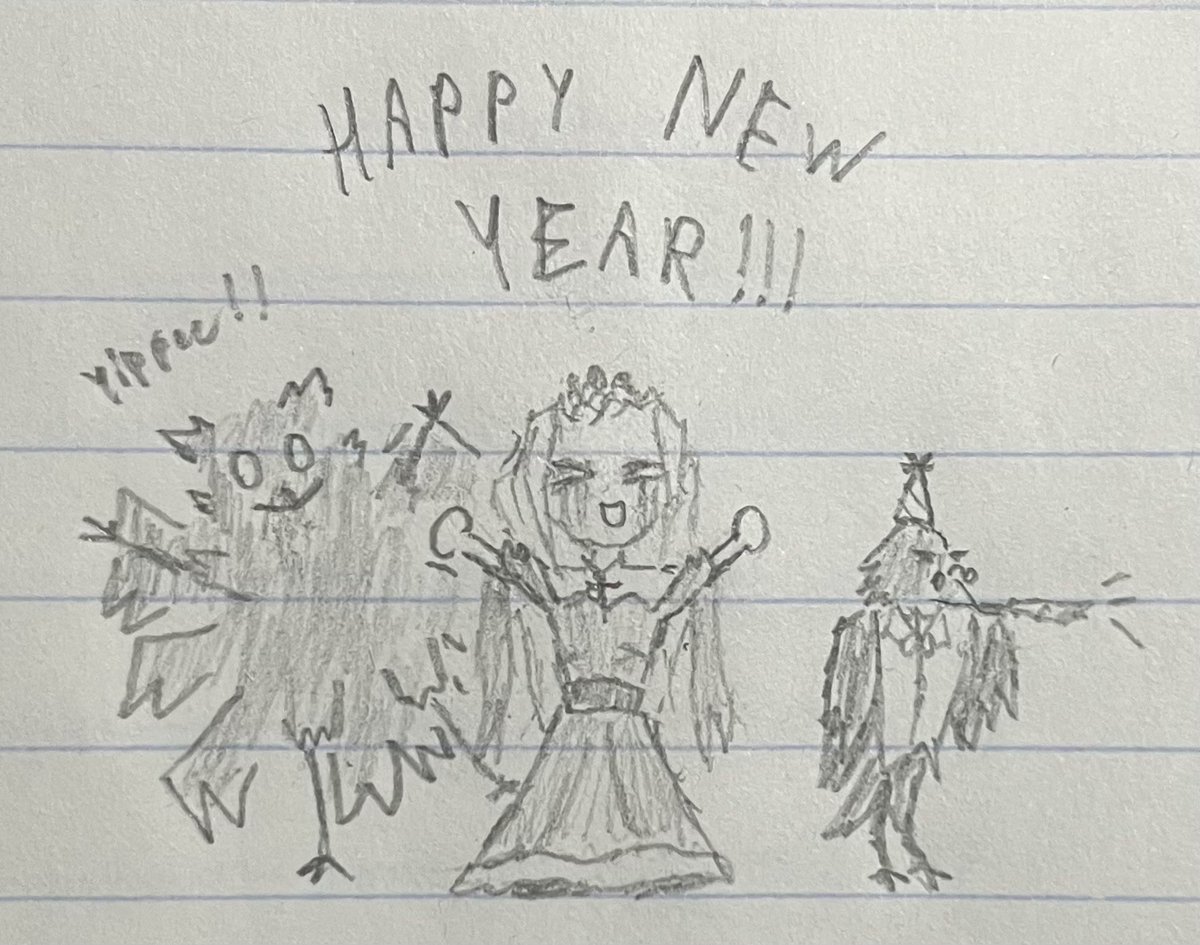 HAPPY NEW
YEAR!!!
Yippee!!